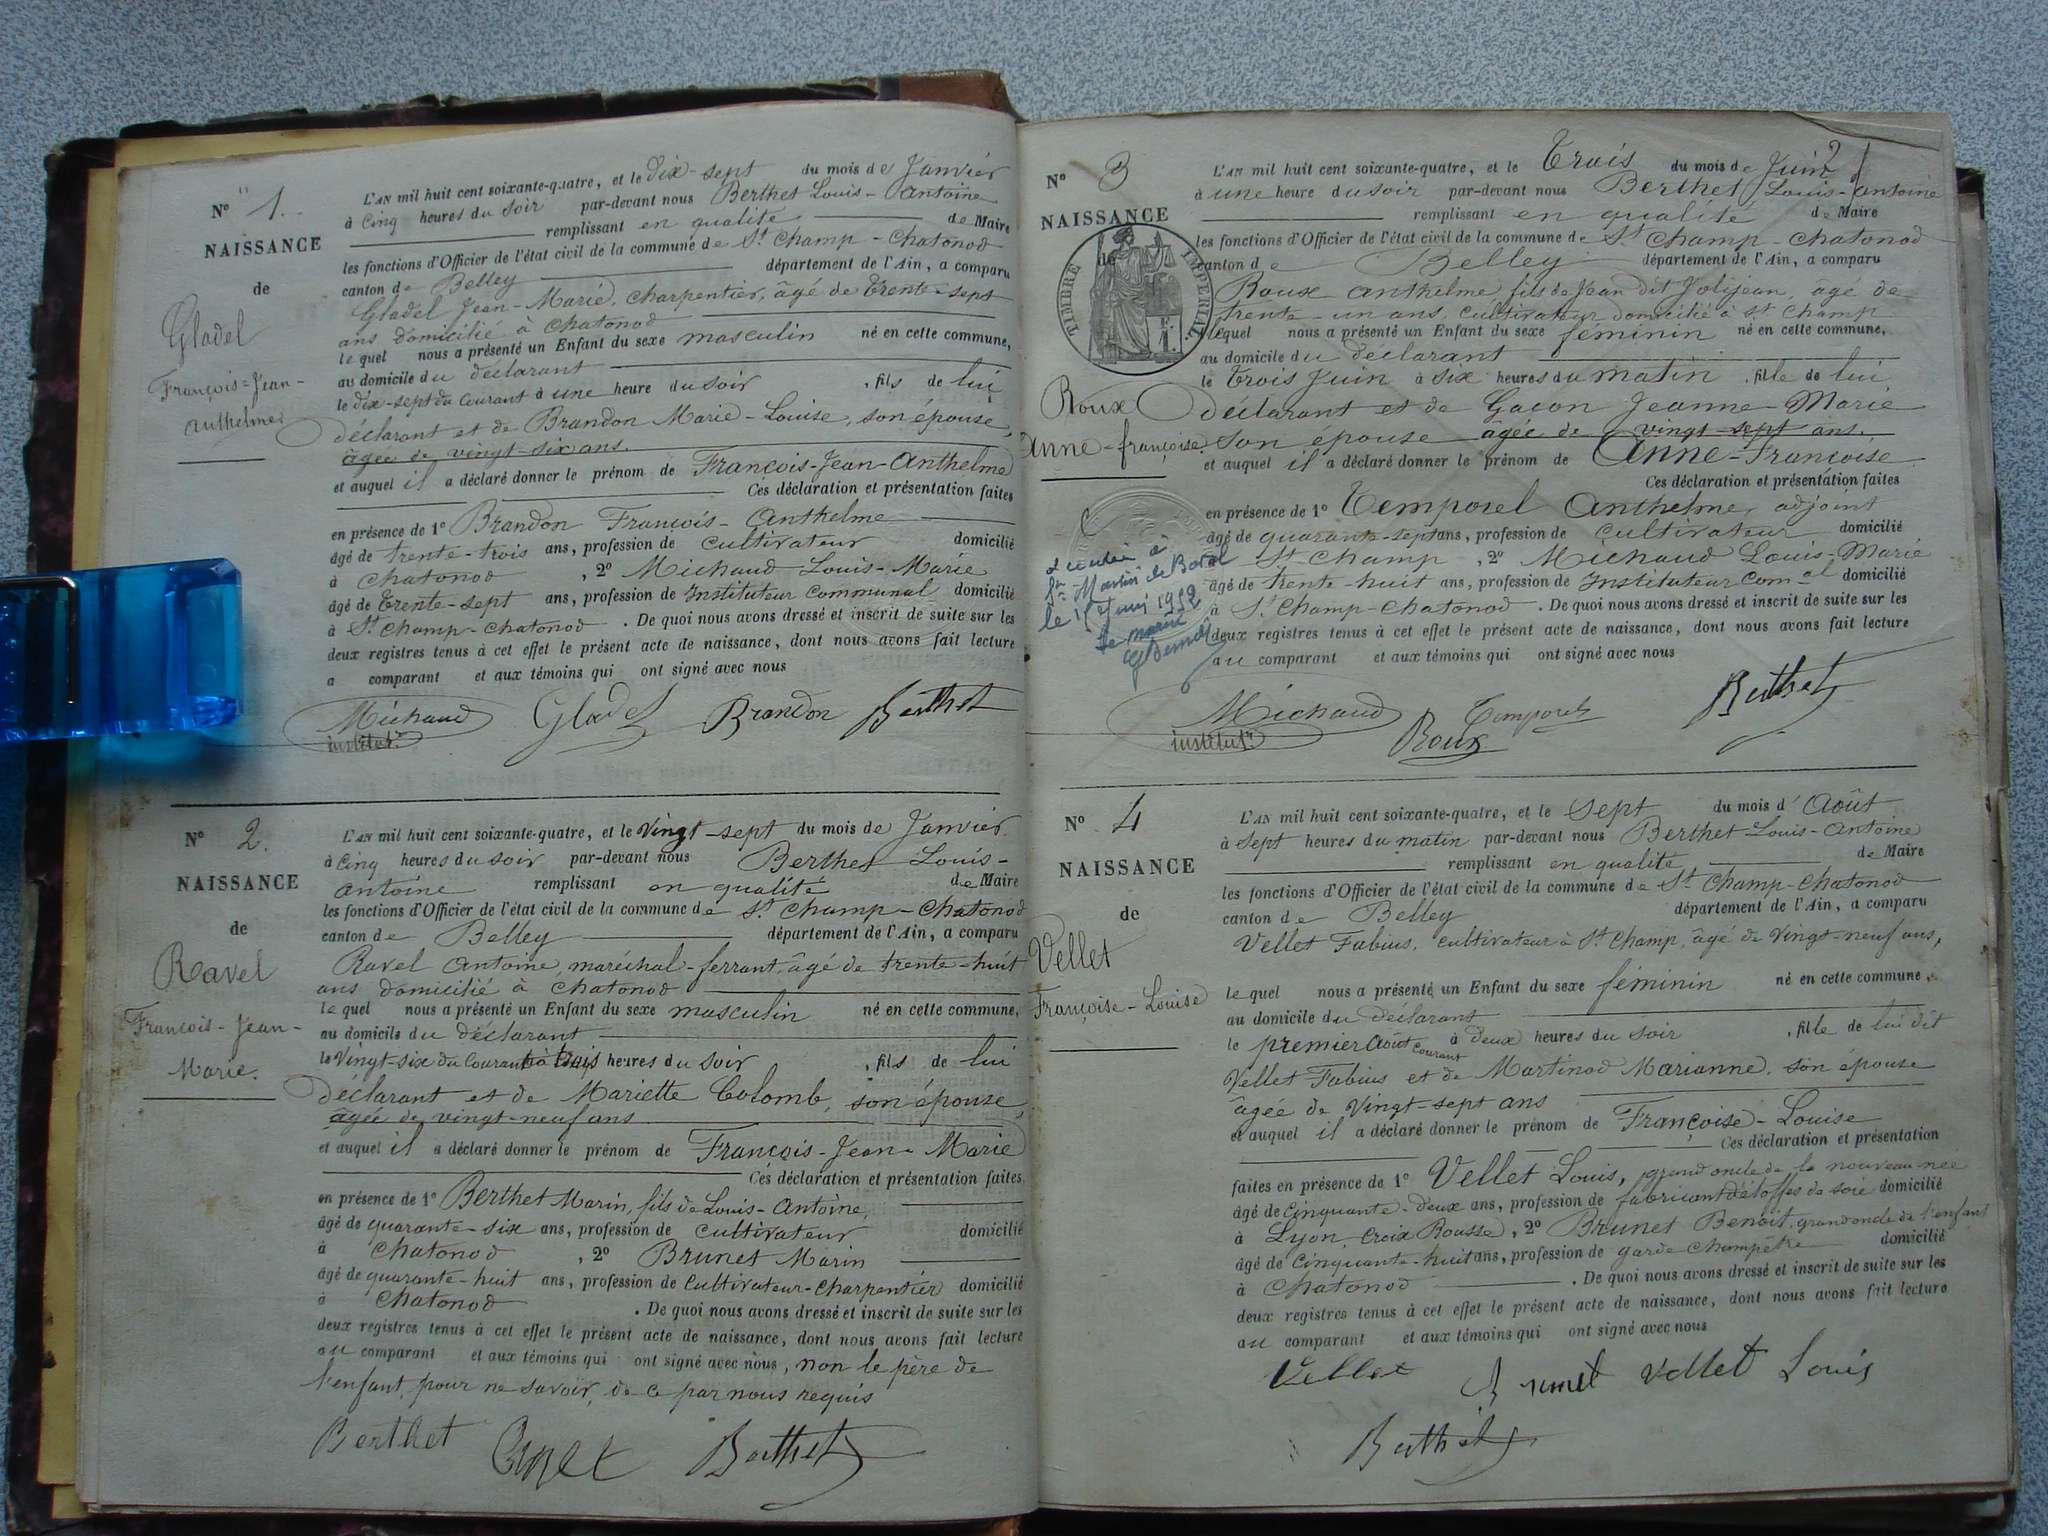 N° 1.
NAISSANCE
de
Gladel
François-Jean-
Anthelme
L'AN mil huit cent soixante-quatre, et le dix-sept du mois de Janvier
à cinq heures du soir par-devant nous Berthet Louis-Antoine
remplissant en qualité de Maire
les fonctions d'Officier de l'état civil de la commune de St Champ-Chatonod
canton de Belley département de l'Ain, a comparu
Gladel Jean-Marie, charpentier, âgé de trente-sept
ans domicilié à Chatonod
lequel nous a présenté un Enfant du sexe masculin né en cette commune,
au domicile du déclarant
le dix-sept du courant à une heure du soir, fils de lui
déclarant et de Brandon Marie-Louise, son épouse,
âgée de vingt-six ans.
et auquel il a déclaré donner le prénom de François-Jean-Anthelme
Ces déclaration et présentation faites
en présence de 1° Brandon François-Anthelme
âgé de trente-trois ans, profession de cultivateur domicilié
à Chatonod, 2° Michaud Louis-Marie
âgé de trente-sept ans, profession de Instituteur communal domicilié
à St Champ-Chatonod. De quoi nous avons dressé et inscrit de suite sur les
deux registres tenus à cet effet le présent acte de naissance, dont nous avons fait lecture
a comparant et aux témoins qui ont signé avec nous
Michaud Gladel Brandon Berthet
institutr
N° 2.
NAISSANCE
de
Ravel
François-Jean-
Marie.
L'AN mil huit cent soixante-quatre, et le vingt-sept du mois de Janvier
à cinq heures du soir par-devant nous Berthet Louis-
Antoine remplissant en qualité de Maire
les fonctions d'Officier de l'état civil de la commune de St Champ-Chatonod
canton de Belley département de l'Ain, a comparu
Ravel Antoine, maréchal-ferrant, âgé de trente-huit
ans domicilié à Chatonod
lequel nous a présenté un Enfant du sexe masculin né en cette commune,
au domicile du déclarant
le vingt-six du courant à trois heures du soir, fils de lui
déclarant et de Mariette Colomb, son épouse,
âgée de vingt-neuf ans
et auquel il a déclaré donner le prénom de François-Jean-Marie
Ces déclaration et présentation faites
en présence de 1° Berthet Marin, fils de Louis-Antoine,
âgé de quarante-six ans, profession de cultivateur domicilié
à Chatonod, 2° Brunet Marin
âgé de quarante-huit ans, profession de cultivateur-charpentier domicilié
à Chatonod. De quoi nous avons dressé et inscrit de suite sur les
deux registres tenus à cet effet le présent acte de naissance, dont nous avons fait lecture
au comparant et aux témoins qui ont signé avec nous, non le père de
l'enfant, pour ne savoir, de ce par nous requis
Berthet Berthet
N° 3
NAISSANCE
de
TIMBRE IMPERIAL
Roux
Anne-françoise
décédée à
St Martin de Bavel
le 17 Juin 1952
le maire
L'AN mil huit cent soixante-quatre, et le trois du mois de Juin 2
à une heure du soir par-devant nous Berthet Louis-Antoine
remplissant en qualité de Maire
les fonctions d'Officier de l'état civil de la commune de St Champ-Chatonod
canton de Belley département de l'Ain, a comparu
Roux Anthelme, fils de Jean dit Jolijean, âgé de
trente-un ans, cultivateur domicilié à St Champ
lequel nous a présenté un Enfant du sexe féminin né en cette commune,
au domicile du déclarant
le trois Juin à six heures du matin, fille de lui
déclarant et de Gacon Jeanne-Marie
son épouse âgée de vingt-sept ans.
et auquel il a déclaré donner le prénom de Anne-Françoise
Ces déclaration et présentation faites
en présence de 1° Temporel Anthelme, adjoint
âgé de quarante-sept ans, profession de cultivateur domicilié
St Champ, 2° Michaud Louis-Marie
âgé de trente-huit ans, profession de Instituteur comal domicilié
à St Champ-Chatonod. De quoi nous avons dressé et inscrit de suite sur les
deux registres tenus à cet effet le présent acte de naissance, dont nous avons fait lecture
au comparant et aux témoins qui ont signé avec nous
Michaud Temporel Berthet
institutr Roux
N° 4
NAISSANCE
de
Vellet
Françoise-Louise
L'AN mil huit cent soixante-quatre, et le sept du mois d'Août
à sept heures du matin par-devant nous Berthet Louis-Antoine
remplissant en qualité de Maire
les fonctions d'Officier de l'état civil de la commune de St Champ-Chatonod
canton de Belley département de l'Ain, a comparu
Vellet Fabius, cultivateur à St Champ, âgé de vingt-neuf ans,
lequel nous a présenté un Enfant du sexe féminin né en cette commune
au domicile du déclarant
le premier Août courant à deux heures du soir, fille de lui dit
Vellet Fabius et de Martinod Marianne, son épouse
âgée de vingt-sept ans
et auquel il a déclaré donner le prénom de Françoise-Louise
Ces déclaration et présentation
faites en présence de 1° Vellet Louis, grand oncle de la nouveau née
âgé de cinquante-deux ans, profession de fabricant d'étoffes de soie domicilié
à Lyon, Croix Rousse, 2° Brunet Benoit, grand oncle de l'enfant
âgé de cinquante-huit ans, profession de garde champêtre domicilié
à Chatonod. De quoi nous avons dressé et inscrit de suite sur les
deux registres tenus à cet effet le présent acte de naissance, dont nous avons fait lecture
au comparant et aux témoins qui ont signé avec nous
Vellet Brunet Vellet Louis
Berthet